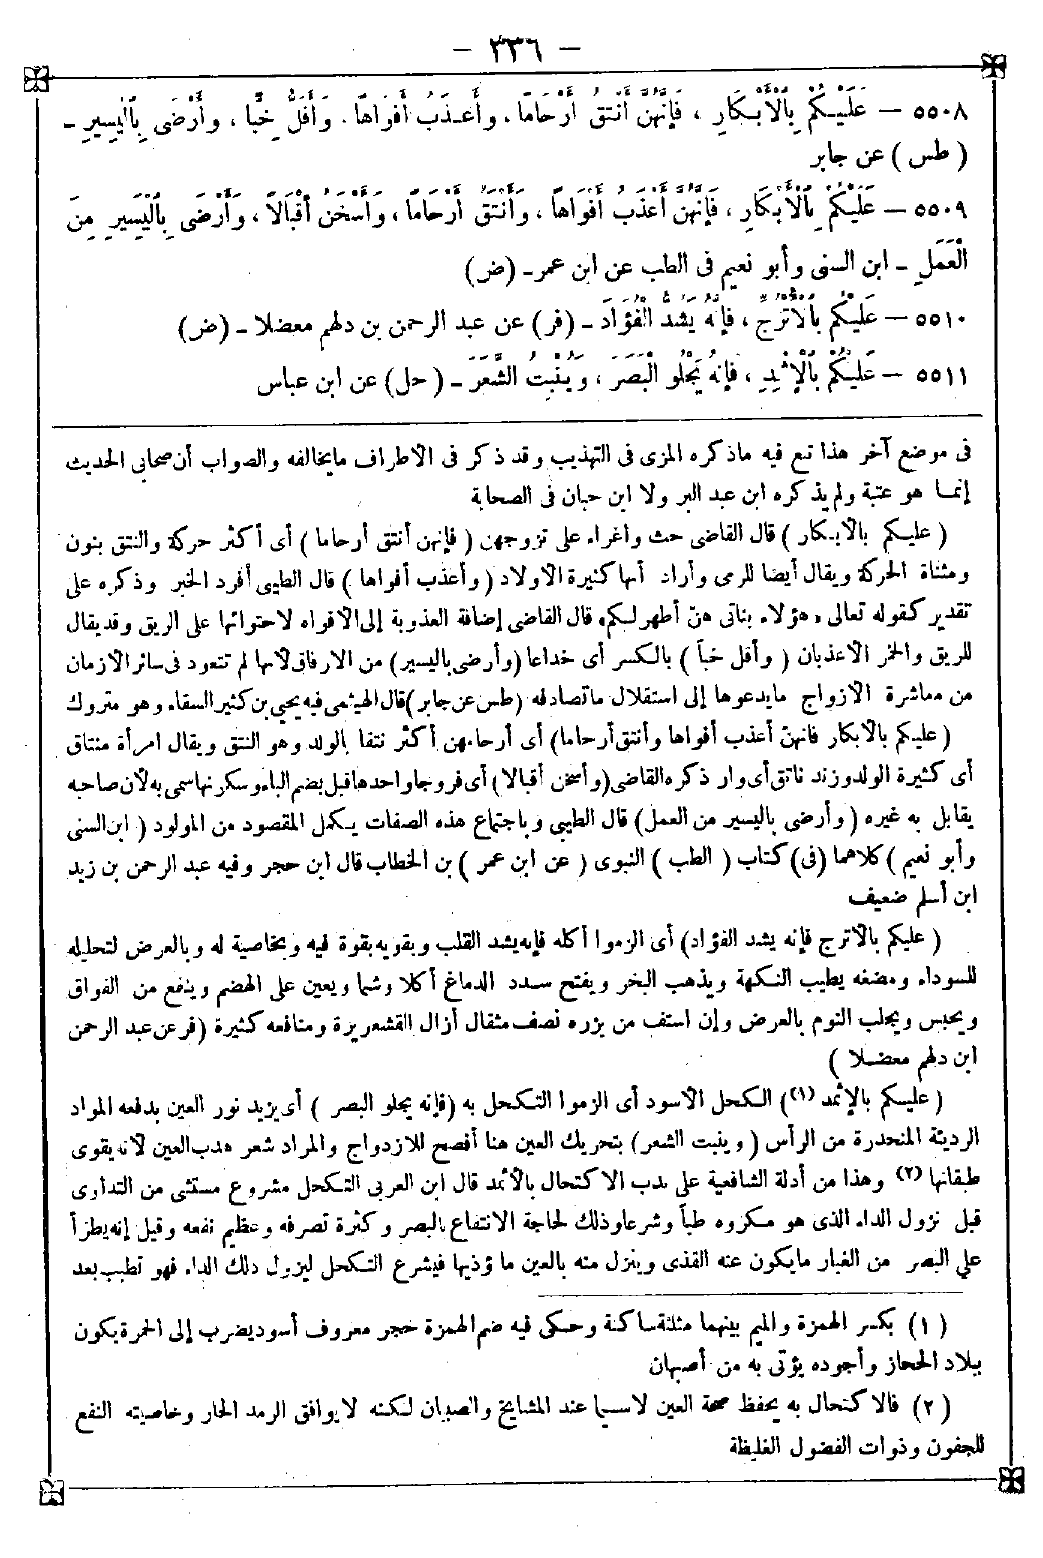 – ٣٣٦ –
٥٥٠٨ – عَلَيْكُمْ بِالْأَبْكَارِ ، فَإِنَّهُنَّ أَنْتَقُ أَرْحَامًا، وأَعْذَبُ أَفْوَاهًا، وَأَقَلُّ خِبًّا ، وَأَرْضَى بِالْيَسِيرِ –
( طس ) عن جابر
٥٥٠٩ – عَلَيْكُمْ بِالْأَبْكَارِ ، فَإِنَّهُنَّ أَعْذَبُ أَفْوَاهًا ، وَأَنْتَقُ أَرْحَامًا ، وَأَسْخَنُ أَقْبَالًا ، وَأَرْضَى بِالْيَسِيرِ مِنَ
الْعَمَلِ – ابن السنى وأبو نعيم فى الطب عن ابن عمر – (ض)
٥٥١٠ – عَلَيْكُمْ بِالْأُتْرُجِّ ، فَإِنَّهُ يَشُدُّ الْفُؤَادَ – (فر) عن عبد الرحمن بن دلهم معضلا – (ض)
٥٥١١ – عَلَيْكُمْ بِالْإِثْمِدِ ، فَإِنَّهُ يَجْلُو الْبَصَرَ ، وَيُنْبِتُ الشَّعَرَ – (حل) عن ابن عباس
فى موضع آخر هذا تبع فيه ماذكره المزى فى التهذيب وقد ذكر فى الأطراف مايخالفه والصواب أن صحابى الحديث
إنما هو عتبة ولم يذكره ابن عبد البر ولا ابن حبان فى الصحابة
( عليكم بالأبكار ) قال القاضى حث وإغراء على تزوجهن ( فإنهن أنتق أرحاما ) أى أكثر حركة والنتق بنون
ومثناة الحركة ويقال أيضا للرمى وأراد أنها كثيرة الأولاد ( وأعذب أفواها ) قال الطيبى أفرد الخبر وذكره على
تقدير كقوله تعالى «هؤلاء بناتى هن أطهر لكم» قال القاضى إضافة العذوبة إلى الأفواه لاحتوائها على الريق وقد يقال
للريق والخمر الأعذبان ( وأقل خباً ) بالكسر أى خداعا (وأرضى باليسير) من الارفاق لأنها لم تتعود فى سائر الأزمان
من معاشرة الأزواج مايدعوها إلى استقلال ماتصادفه (طس عن جابر) قال الهيثمى فيه يحيى بن كثير السقاء وهو متروك
( عليكم بالأبكار فانهن أعذب أفواها وأنتق أرحاما) أى أرحامهن أكثر نتقا بالولد وهو النتق ويقال امرأة منتاق
أى كثيرة الولد وزند ناتق أى وار ذكره القاضى (وأسخن أقبالا) أى فروجا واحدها قبل بضم الباء وسكونها سمى به لأن صاحبه
يقابل به غيره ( وأرضى باليسير من العمل) قال الطيبى وباجتماع هذه الصفات يكمل المقصود من المولود ( ابن السنى
وأبو نعيم ) كلاهما (فى) كتاب ( الطب ) النبوى ( عن ابن عمر ) بن الخطاب قال ابن حجر وفيه عبد الرحمن بن زيد
ابن أسلم ضعيف
( عليكم بالأترج فإنه يشد الفؤاد) أى الزموا أكله فإنه يشد القلب ويقويه بقوة فيه وبخاصية له وبالعرض لتحليله
للسوداء ومضغه يطيب النكهة ويذهب البخر ويفتح سدد الدماغ أكلا وشما ويعين على الهضم وينفع من الفواق
ويحبس ويجلب النوم بالعرض وإن استف من بزره نصف مثقال أزال القشعريرة ومنافعه كثيرة (فر عن عبد الرحمن
ابن دلهم معضلا )
( عليكم بالإثمد (١)) الكحل الأسود أى الزموا التكحل به (فإنه يجلو البصر ) أى يزيد نور العين بدفعه المواد
الرديئة المنحدرة من الرأس ( وينبت الشعر) بتحريك العين هنا أفصح للازدواج والمراد شعر هدب العين لأنه يقوى
طبقاتها (٢) وهذا من أدلة الشافعية على ندب الاكتحال بالأثمد قال ابن العربى التكحل مشروع مستثنى من التداوى
قبل نزول الداء الذى هو مكروه طباً وشرعا وذلك لحاجة الانتفاع بالبصر وكثرة تصرفه وعظيم نفعه وقيل إنه يطرأ
على البصر من الغبار مايكون عنه القذى وينزل منه بالعين ما يؤذيها فيشرع التكحل ليزول ذلك الداء فهو تطبب بعد
( ١ ) بكسر الهمزة والميم بينهما مثلثة ساكنة وحكى فيه ضم الهمزة حجر معروف أسود يضرب إلى الحمرة يكون
ببلاد الحجاز وأجوده يؤتى به من أصبهان
( ٢ ) فالاكتحال به يحفظ صحة العين لاسيما عند المشايخ والصبيان لكنه لايوافق الرمد الحار وخاصيته النفع
للجفون وذوات الفضول الغليظة